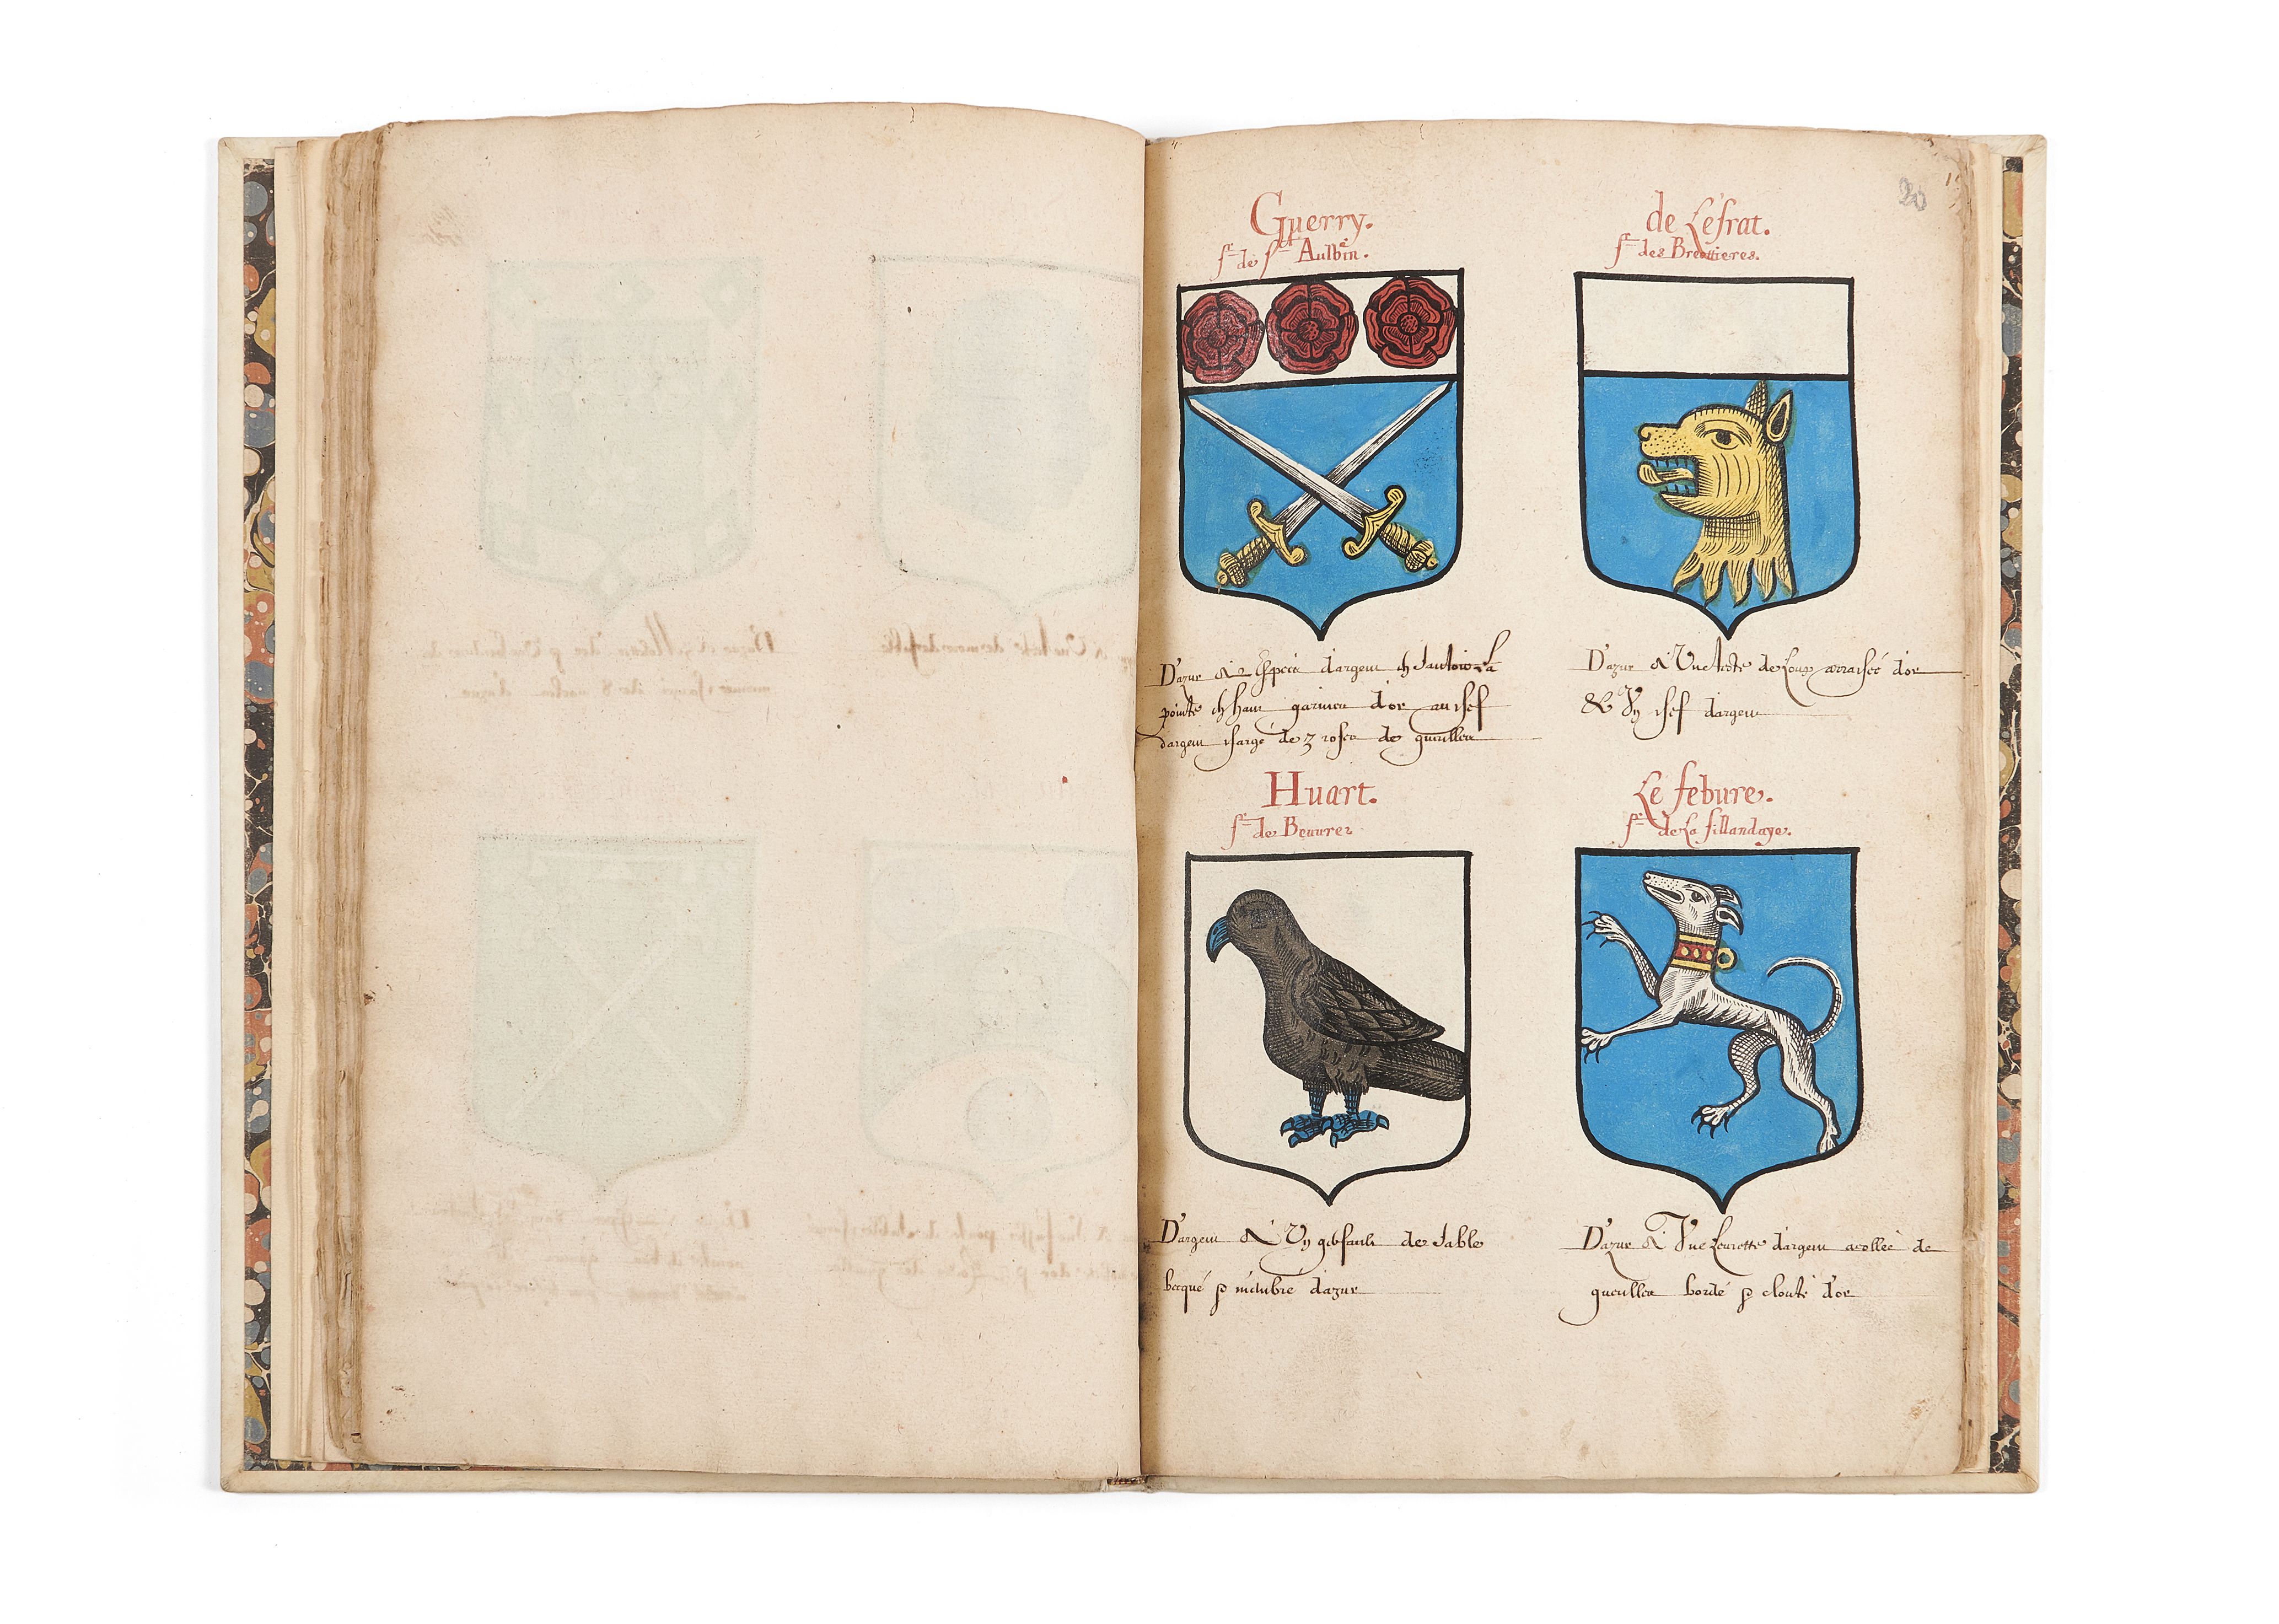 20
Guerry.
Sr de St Aulbin.
D'azur A 2 Espees dargent en sautoir La
pointe en haut garnies d'or au chef
dargent charge de 3 roses de gueulles
de Lesrat.
Sr des Breottieres.
D'azur A Vne teste de Loup arrachée d'or
& Vn chef dargent
Huart.
Sr de Beuures
D'argent A Vn gerfault de sable
becqué & membré dazur
Le febure.
Sr de La fillandaye.
D'azur A Vne Leurette dargent acollée de
gueulles bordé & clouté d'or